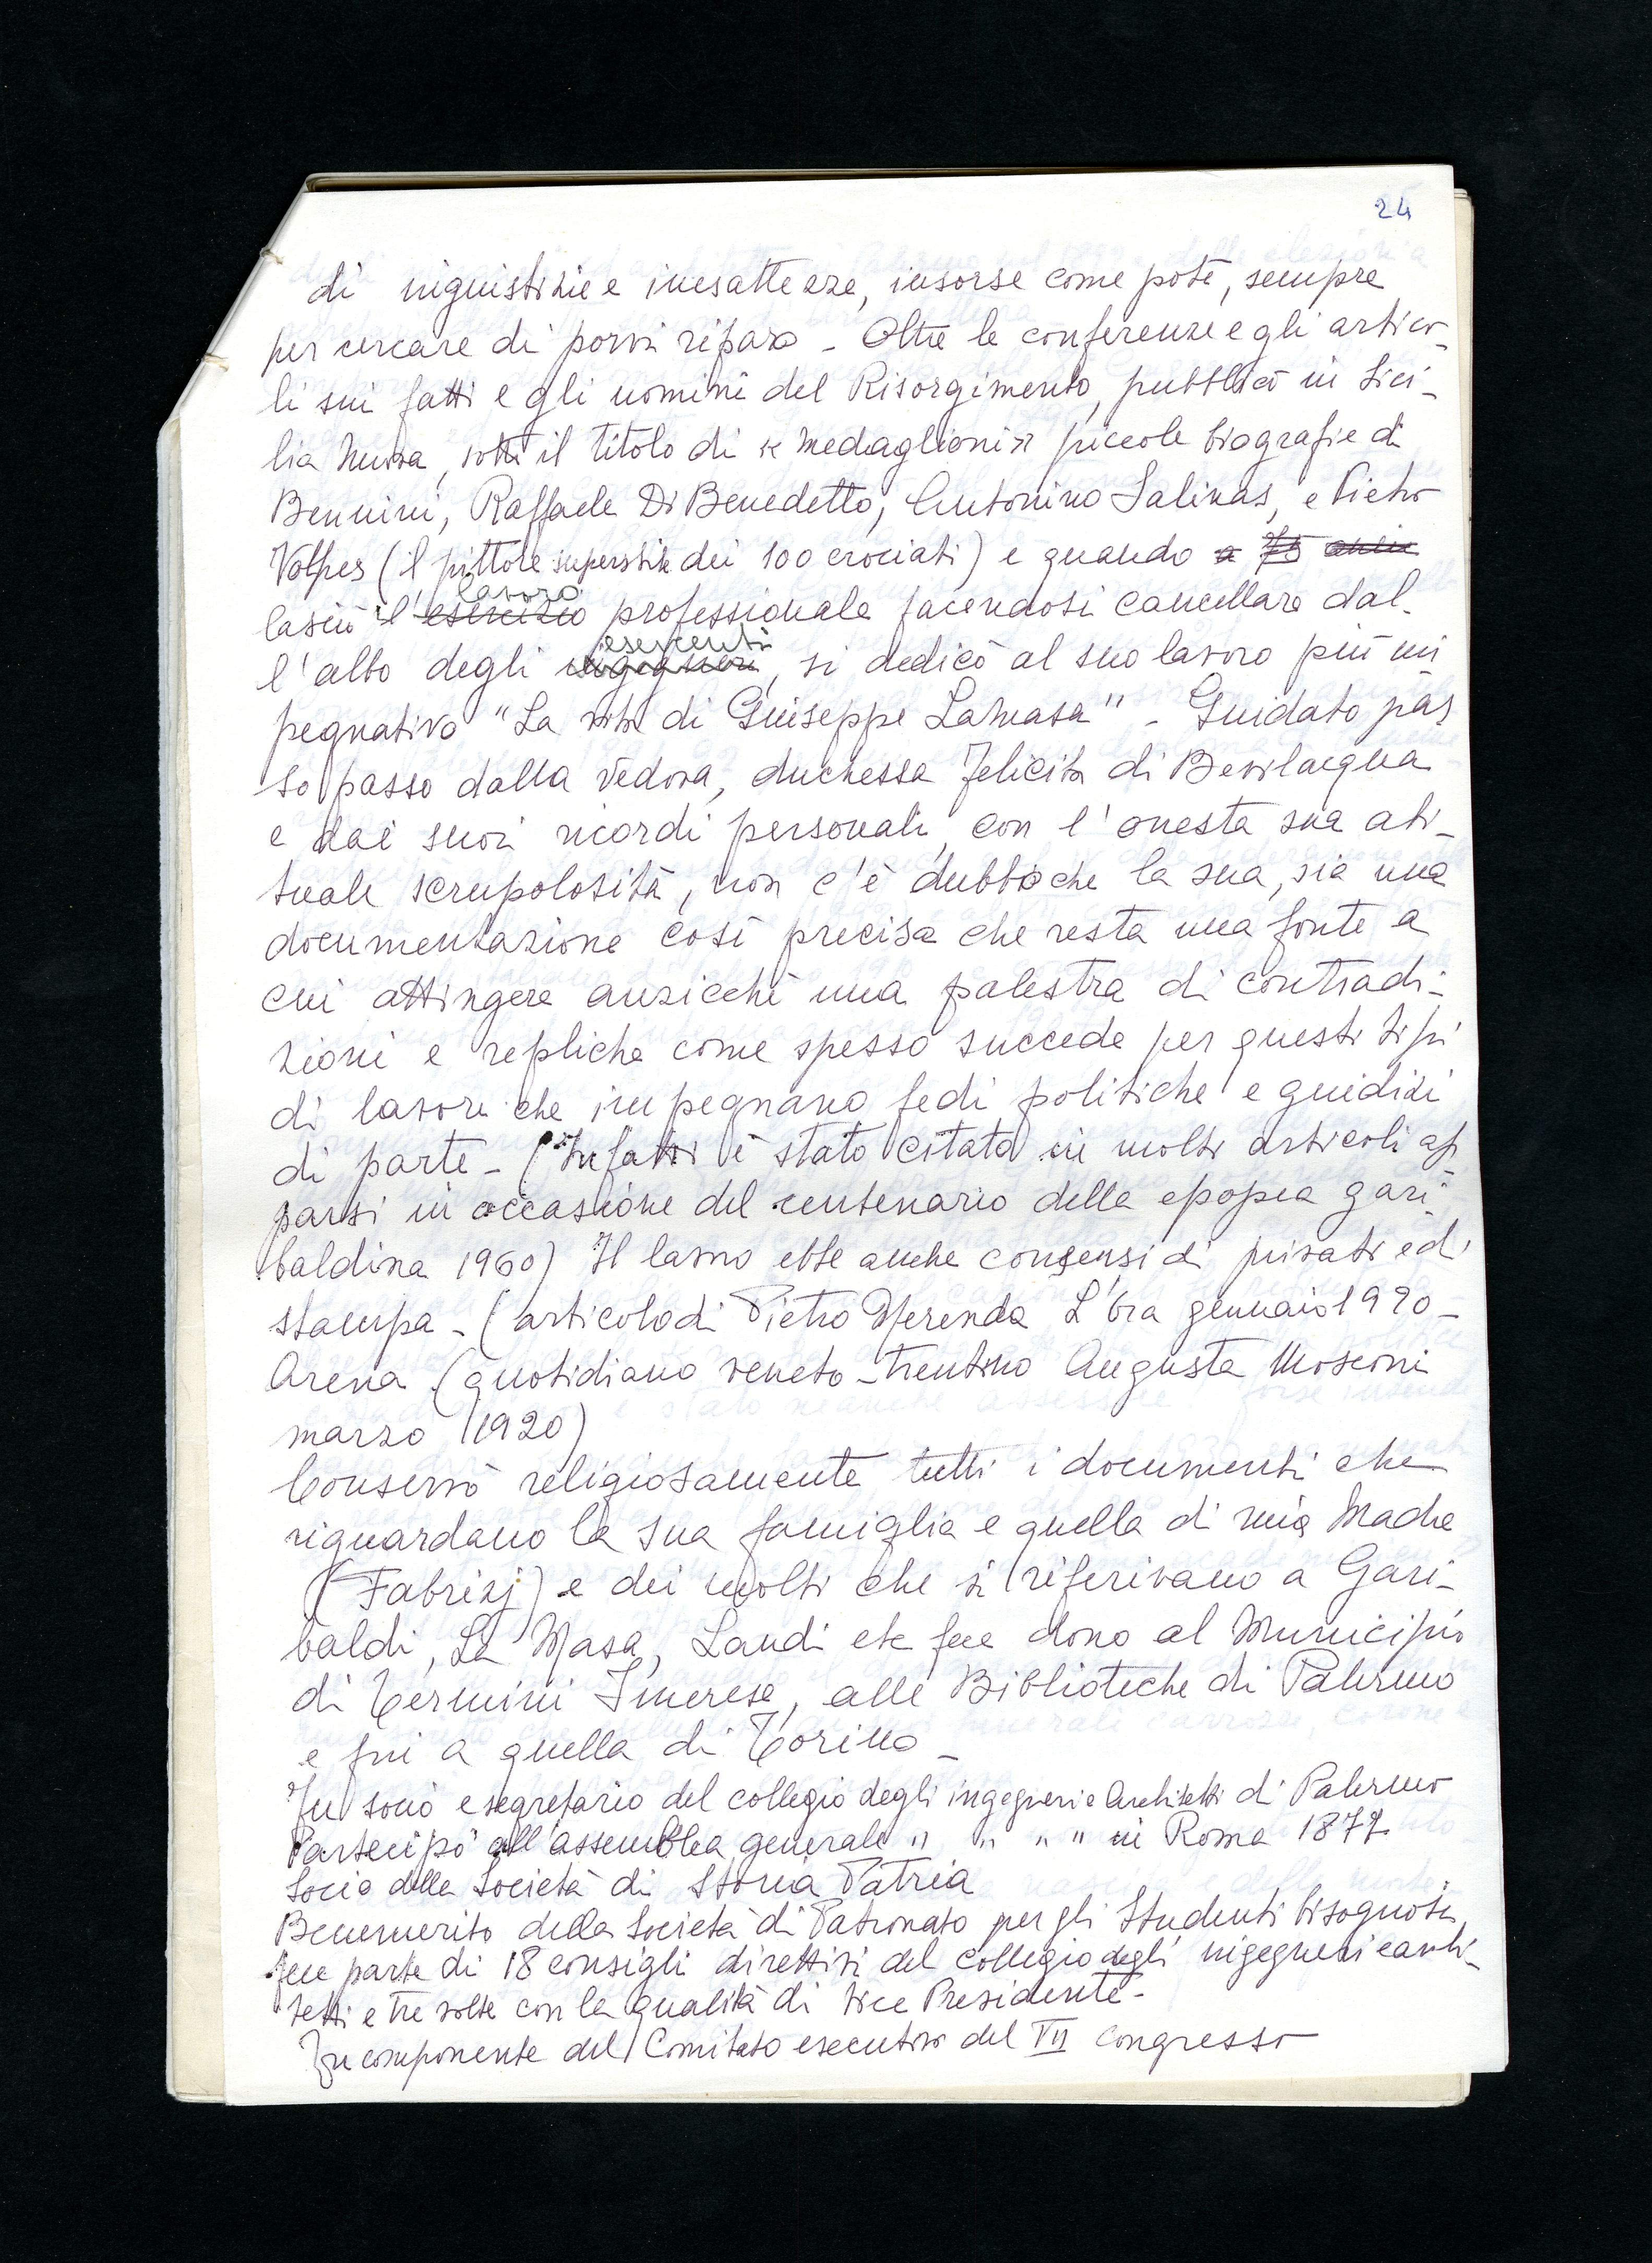 24
di ingiustizie e inesattezze, insorse come poté, sempre
per cercare di porvi riparo - Oltre le conferenze e gli artico-
li sui fatti e gli uomini del Risorgimento, pubblicò in Sici-
lia Nuova, sotto il titolo di « Medaglioni » piccole biografie di
Bennini, Raffaele Di Benedetto, Antonino Salinas, e Pietro
Volpes (il pittore superstite dei 100 crociati) e quando a 75 anni
lasciò il esercizio lavoro professionale facendosi cancellare dal-
l'albo degli ingegneri esercenti, si dedicò al suo lavoro più im
pegnativo "La vita di Giuseppe LaMasa" - Guidato pas
so passo dalla vedova, duchessa Felicita di Bevilacqua
e dai suoi ricordi personali, con l'onesta sua abi-
tuale scrupolosità, non c'è dubbio che la sua, sia una
documentazione così precisa che resta una fonte a
cui attingere anzicchè una palestra di contradi-
zioni e repliche come spesso succede per questi tipi
di lavori che impegnano fedi politiche e giudizi
di parte - (Infatti è stato citato in molti articoli ap
parsi in occasione del centenario della epopea gari-
baldina 1960) Il lavoro ebbe anche consensi di privati e di
stampa - (articolo di Pietro Merenda L'Ora gennaio 1920 -
Arena (quotidiano veneto-trentino Augusta Mosconi
marzo 1920)
Conservò religiosamente tutti i documenti che
riguardano la sua famiglia e quella di mia Madre
(Fabrizj) e dei molti che si riferivano a Gari-
baldi, La Masa, Landi etc fece dono al Municipio
di Termini Imerese, alle Biblioteche di Palermo
e fin a quella di Torino -
Fu socio e segretario del collegio degli ingegneri e Architetti di Palermo
Partecipò all'assemblea generale " " " " in Roma 1877
Socio della Società di Storia Patria
Benemerito della Società di Patronato per gli Studenti bisognosi,
fece parte di 18 consigli direttivi del collegio degli ingegneri e archi-
tetti e tre volte con la qualità di Vice Presidente -
Fu componente del Comitato esecutivo del VII Congresso